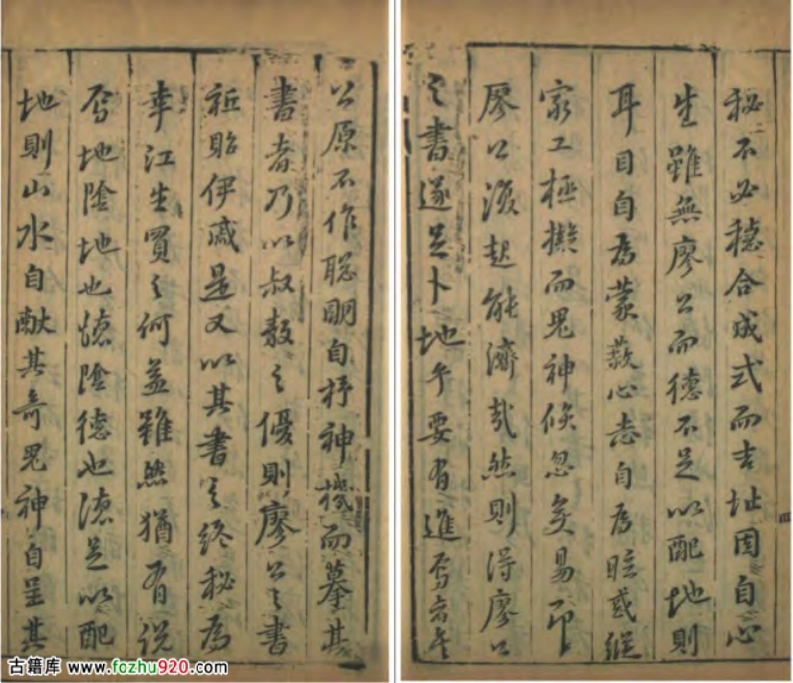 秘不必穗合成式而吉址因自心
生雖無廖公而德不足以配地則
耳目自為蒙蔽心志自為眩惑縱
家工極擬而鬼神倏忽變易即
廖公復起能濟哉然則得廖公
之書遂足卜地乎要有進焉者
公原不作聰明自抒神機而摹其
書者乃以叔敖之優則廖公之書
祗貽伊戚是又以其書之終秘為
幸江生買之何益雖然猶有說
焉地陰地也德陰德也德足以配
地則山水自献其奇鬼神自呈其
古籍库 www.fozhu920.com